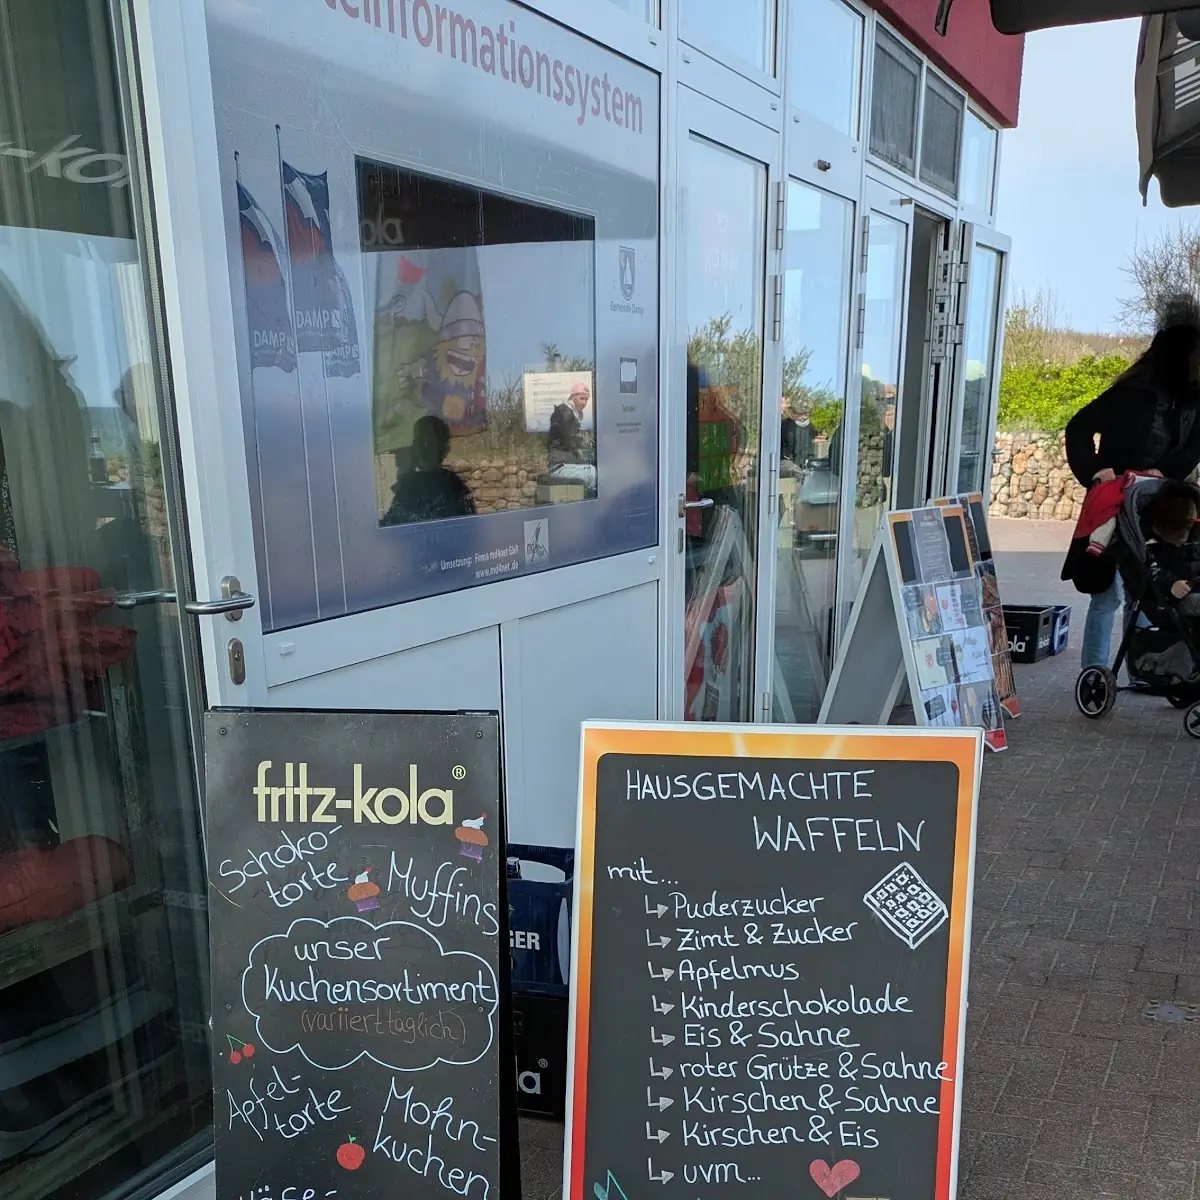 einformationssystem
DAMP
DAMP
DAMP
Gemeinde Damp
Umsetzung: Firma md4net GbR
www.md4net.de
fritz-kola®
Schoko-
torte
Muffins
unser
Kuchensortiment
(variiert täglich)
Apfel-
torte
Mohn-
kuchen
HAUSGEMACHTE
WAFFELN
mit...
↳ Puderzucker
↳ Zimt & Zucker
↳ Apfelmus
↳ Kinderschokolade
↳ Eis & Sahne
↳ roter Grütze & Sahne
↳ Kirschen & Sahne
↳ Kirschen & Eis
↳ uvm...
GER